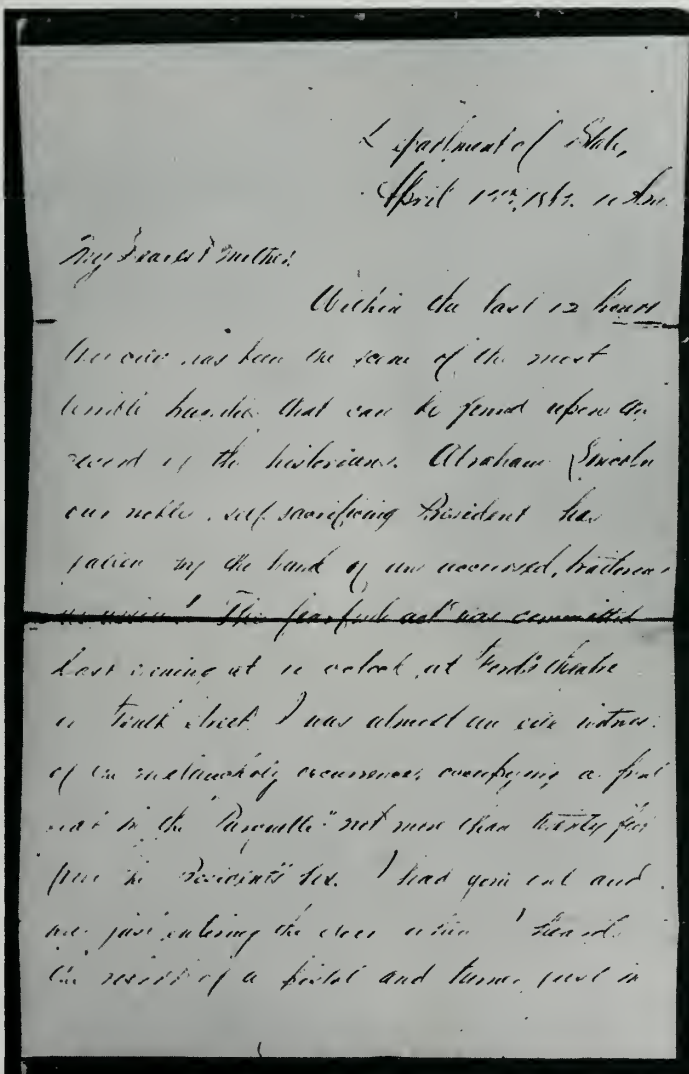 Department of State,
April 15th, 1865. 10 Am.
My Dearest Mother.
Within the last 12 hours
has been the scene of the most
terrible that can be found upon the
record of the historians. Abraham Lincoln
our noble, self sacrificing President has
fallen by the hand of an accursed, traitorous
assassin! This fearful act was committed
last evening at 10 oclock at Ford's theatre
on Tenth street. I was almost an eye witness
of the melancholy occurrence, occupying a front
seat in the "Parquette" not more than twenty feet
from the Presidents box. I had gone out and
was just entering the door when I heard
the report of a pistol and turned just in